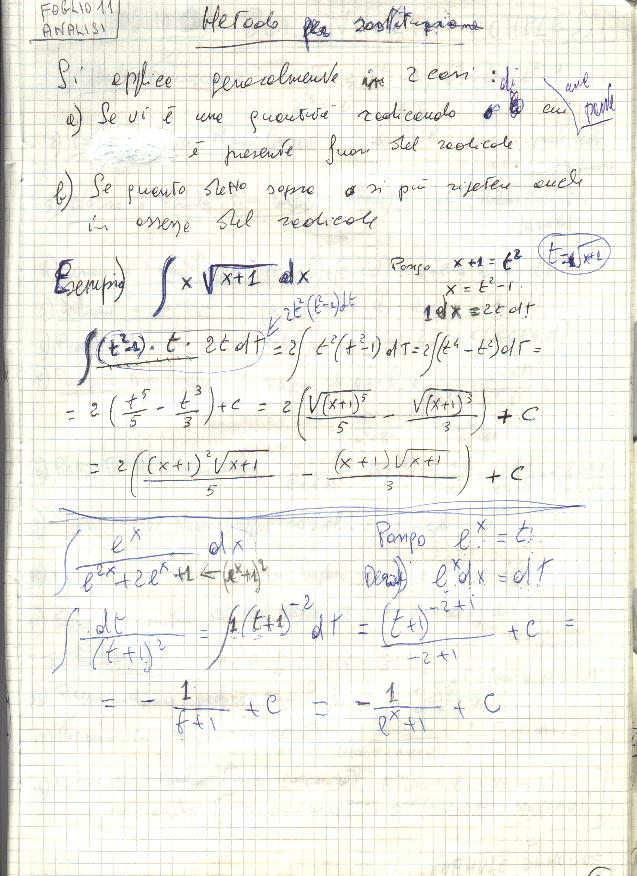 FOGLIO 11
ANALISI
Metodo per sostituzione
Si applica generalmente in 2 casi :
a) Se vi è una quantità radicando di cui una parte
è presente fuori del radicale
b) Se quanto detto sopra si può ripetere anche
in assenza del radicale
Esempio) ∫ x √(x+1) dx
Pongo x+1 = t² t = √(x+1)
x = t²-1
1dx = 2t dt
2t²(t²-1)dt
∫ (t²-1) · t · 2t dt = 2∫ t²(t²-1) dT = 2∫(t⁴ - t²) dT =
= 2 (t⁵/5 - t³/3) + c = 2 (√(x+1)⁵/5 - √(x+1)³/3) + C
= 2 ((x+1)²√(x+1)/5 - (x+1)√(x+1)/3) + C
∫ eˣ/(e²ˣ+2eˣ+1) dx ← (eˣ+1)²
Pongo eˣ = t
eˣdx = dt
∫ dt/(t+1)² = ∫ 1(t+1)⁻² dT = (t+1)⁻²⁺¹/(-2+1) + C =
= - 1/(t+1) + C = - 1/(eˣ+1) + C